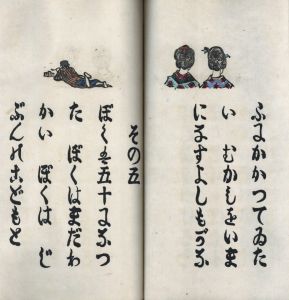 ふにかかつてゐた
い むかしをいま
になすよしもがな
その五
ぼくは五十になつ
た ぼくはまだわ
かい ぼくは じ
ぶんのこどもと